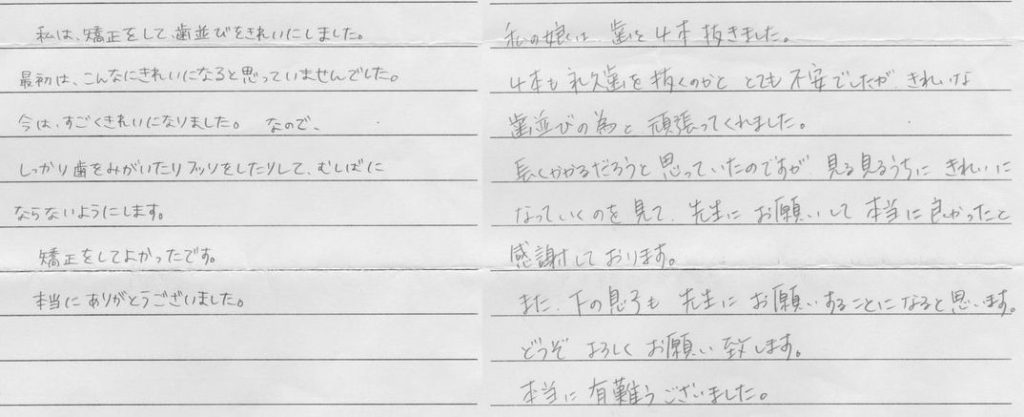 私は、矯正をして、歯並びをきれいにしました。
最初は、こんなにきれいになると思っていませんでした。
今は、すごくきれいになりました。 なので、
しっかり歯をみがいたりフッソをしたりして、むしばに
ならないようにします。
矯正をしてよかったです。
本当にありがとうございました。
私の娘は、歯を4本抜きました。
4本も永久歯を抜くのかと とても不安でしたが、きれいな
歯並びの為と 頑張ってくれました。
長くかかるだろうと思っていたのですが 見る見るうちに きれいに
なっていくのを見て、先生に お願いして 本当に良かったと
感謝しております。
また、下の息子も 先生に お願いすることになると思います。
どうぞ よろしく お願い致します。
本当に 有難うございました。